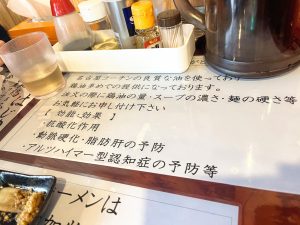 名古屋コーチンの良質な油を使っており
鶏油多めでの提供になっております。
注文の際に鶏油の量・スープの濃さ・麺の硬さ等
お気軽にお申し付け下さい
【効能・効果】
・抗酸化作用
・動脈硬化・脂肪肝の予防
・アルツハイマー型認知症の予防等
ーメンは